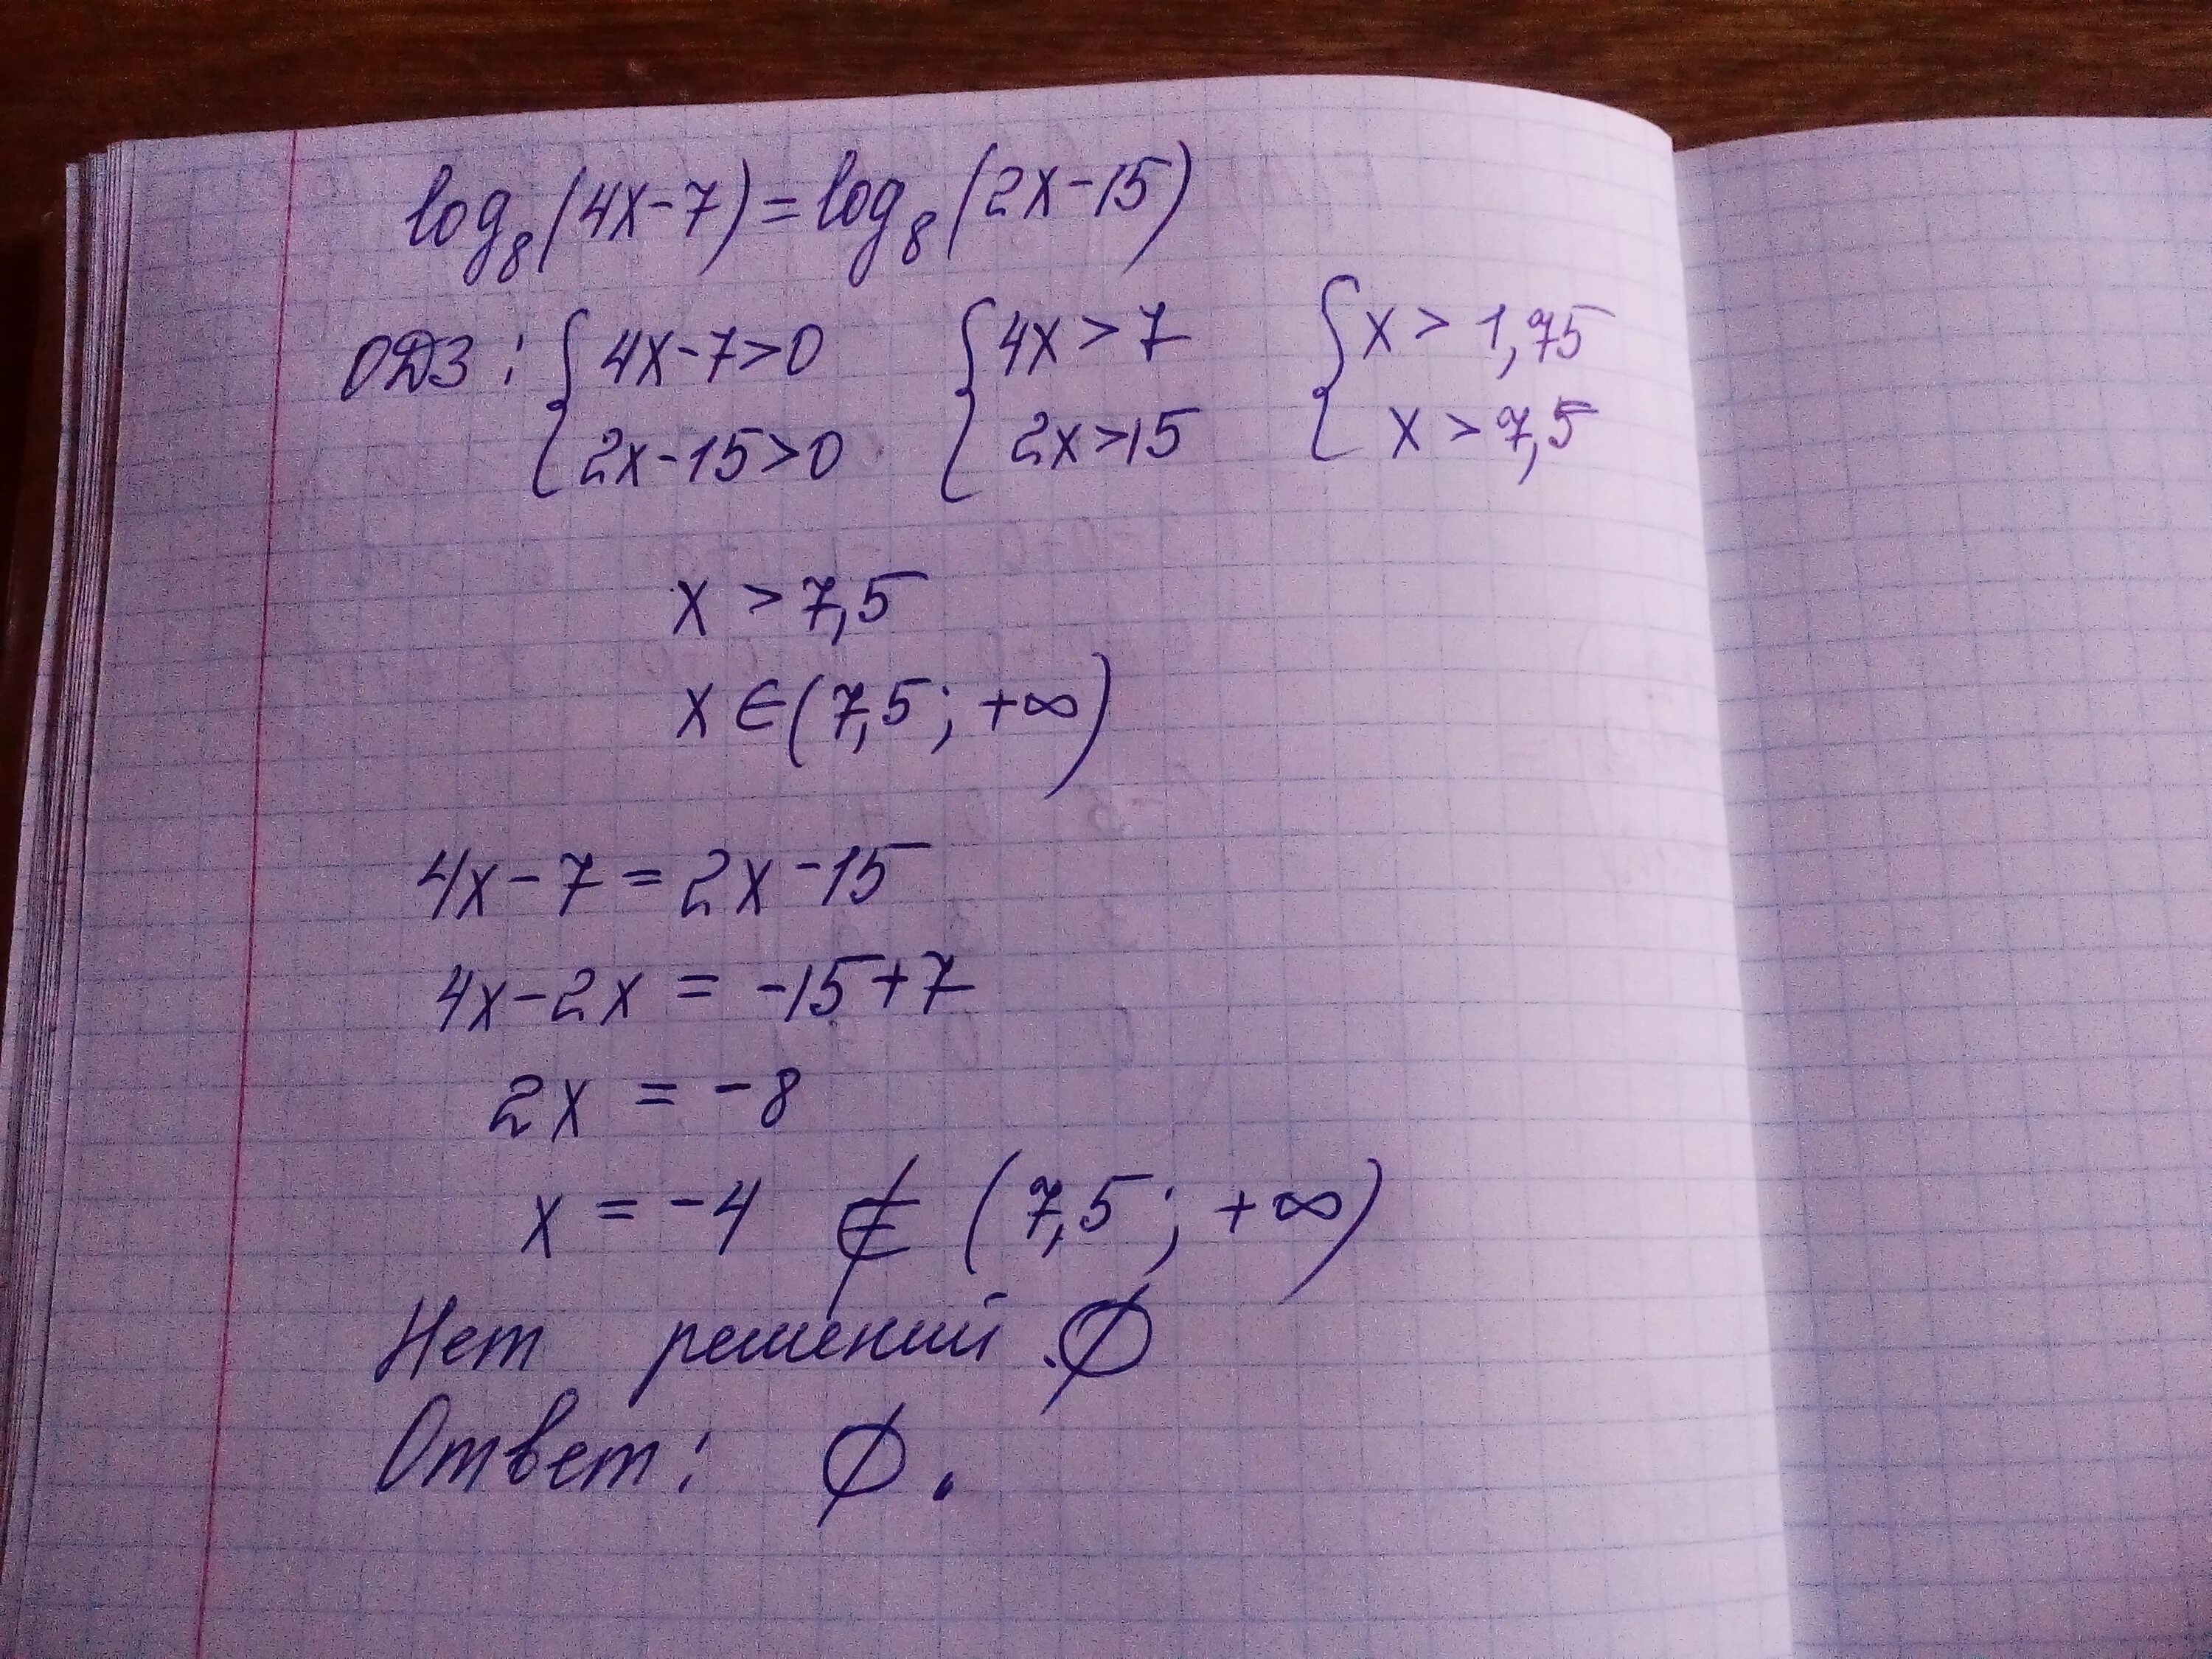 log₈(4x-7)=log₈(2x-15)
ОДЗ: { 4x-7>0 { 4x>7 { x>1,75
2x-15>0 2x>15 x>7,5
x>7,5
x∈(7,5;+∞)
4x-7=2x-15
4x-2x=-15+7
2x=-8
x=-4 ∉ (7,5;+∞)
Нет решений. ∅
Ответ: ∅.